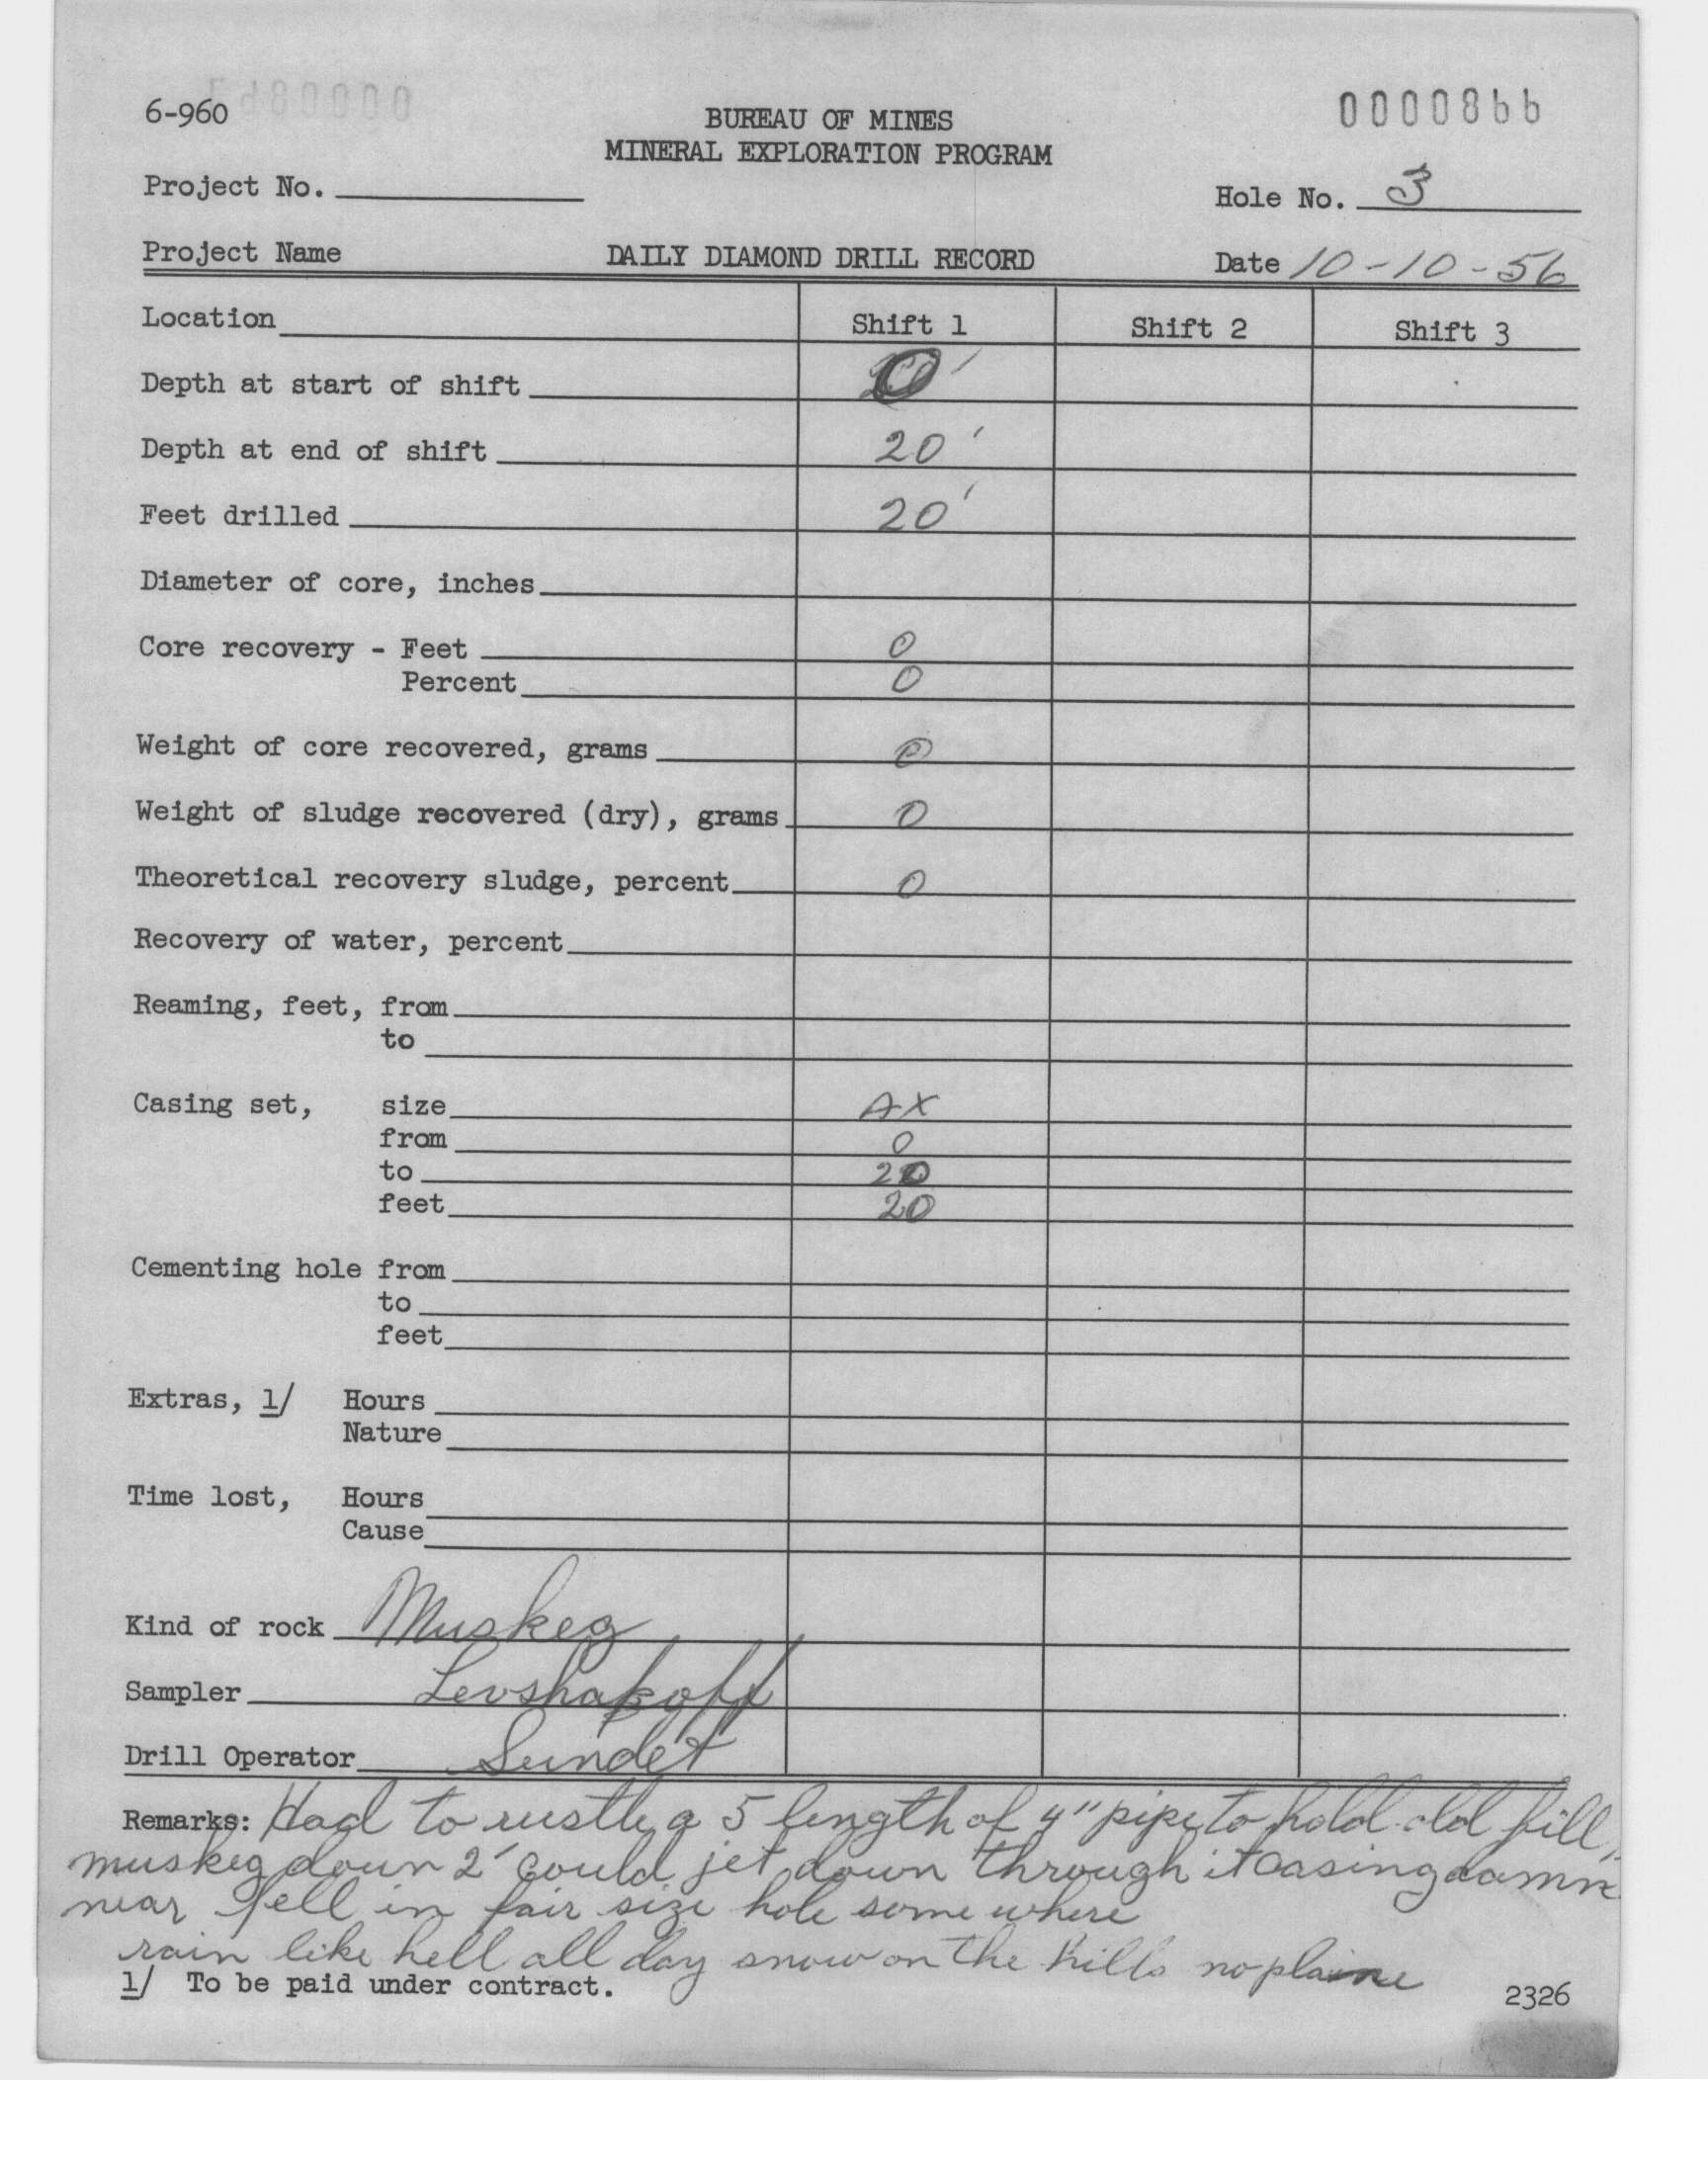 6-960
BUREAU OF MINES
0000866
MINERAL EXPLORATION PROGRAM
Project No.
Hole No. 3
Project Name DAILY DIAMOND DRILL RECORD Date 10-10-56
Location Shift 1 Shift 2 Shift 3
Depth at start of shift 0'
Depth at end of shift 20'
Feet drilled 20'
Diameter of core, inches
Core recovery - Feet 0
Percent 0
Weight of core recovered, grams 0
Weight of sludge recovered (dry), grams 0
Theoretical recovery sludge, percent 0
Recovery of water, percent
Reaming, feet, from
to
Casing set, size AX
from 0
to 20
feet 20
Cementing hole from
to
feet
Extras, 1/ Hours
Nature
Time lost, Hours
Cause
Kind of rock Muskeg
Sampler Levshakoff
Drill Operator Sundet
Remarks: Had to rustle a 5 length of 4" pipe to hold old fill,
muskeg down 2' could jet down through it casing damn
near fell in fair size hole some where
rain like hell all day snow on the hills no plane
1/ To be paid under contract.
2326